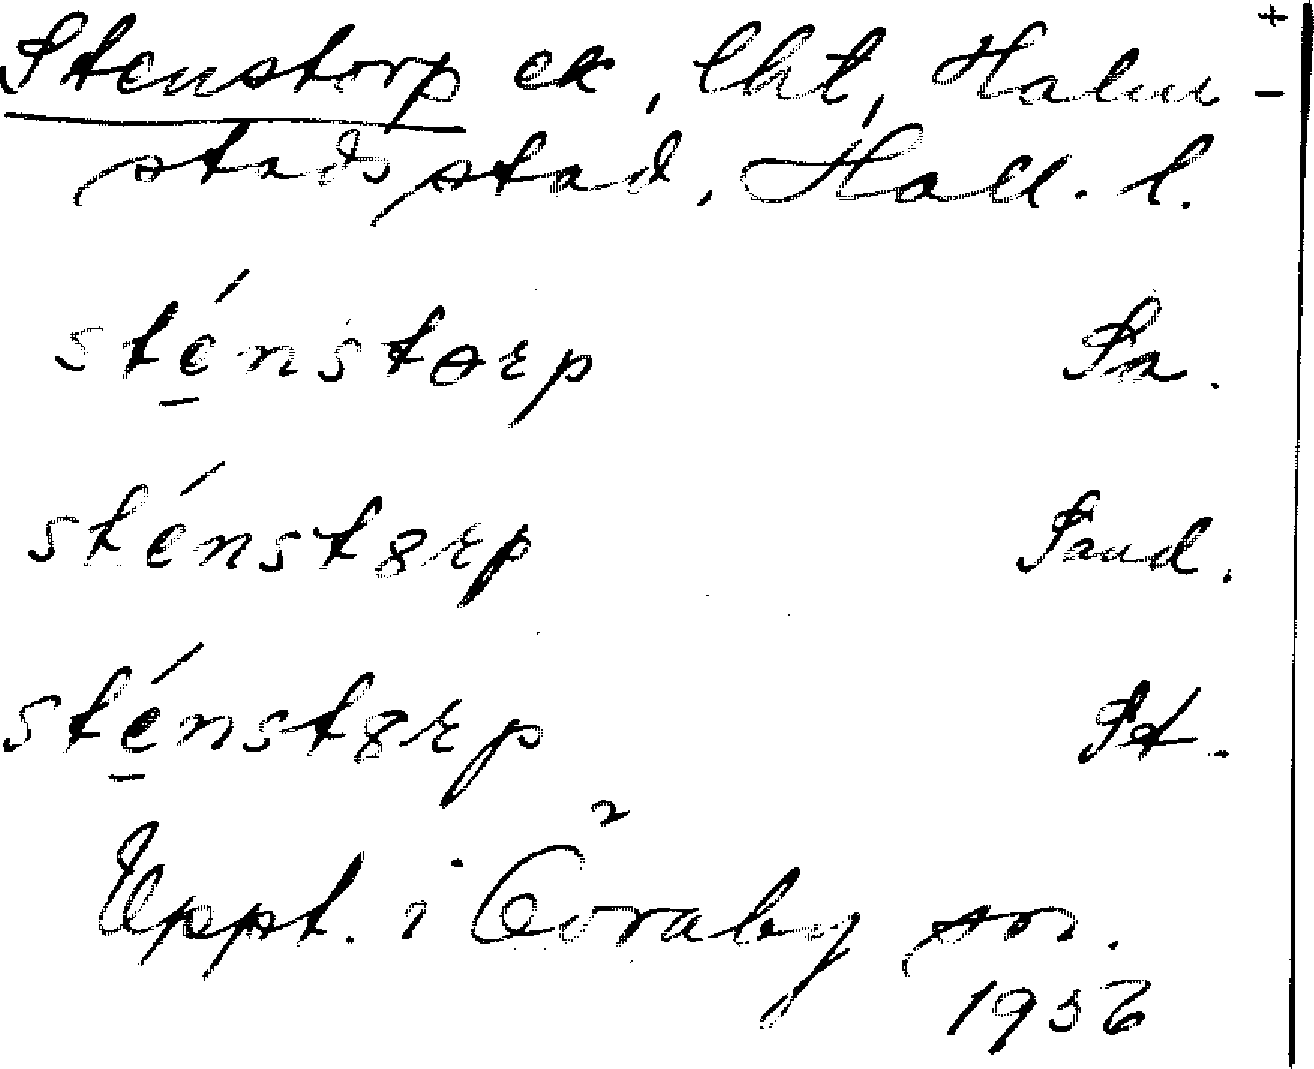 +
Stenstorp ek, lht, Halm-
stads stad, Hall. l.
sténstɵrp Sa.
sténstɞrp Sand.
sténstɞrp St.
Uppt. i Övraby sn.
1936